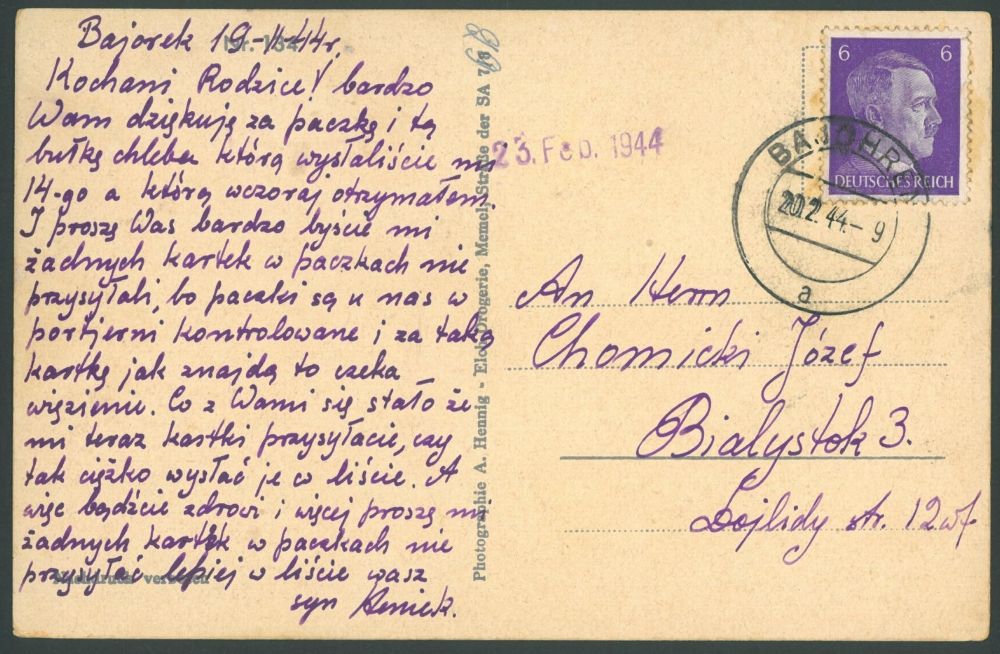 Bajorek 19-II-44r.
Kochani Rodzice! bardzo
Wam dziękuję za paczkę i tą
bułkę chleba którą wysłaliście mi
14-go a którą wczoraj otrzymałem.
I proszę Was bardzo byście mi
żadnych kartek w paczkach nie
przysyłali, bo paczki są u nas w
portjerni kontrolowane i za taką
kartkę jak znajdą to czeka
więzienie. Co z Wami się stało że-
mi teraz kartki przysyłacie, czy
tak ciężko wysłać je w liście. A
więc bądźcie zdrowi i więcej proszę mi
żadnych kartek w paczkach nie
przysyłać lepiej w liście wasz
syn Heniek.
Nr. 134
Nachdruck verboten
Photographie A. Hennig - Elch-Drogerie, Memel, Straße der SA 7/8
23. Feb. 1944
6 6
DEUTSCHES REICH
BAJOHR
20.2.44.- 9
a
An Herrn
Chomicki Józef
Bialystok 3.
Dojlidy str. 12 wf.